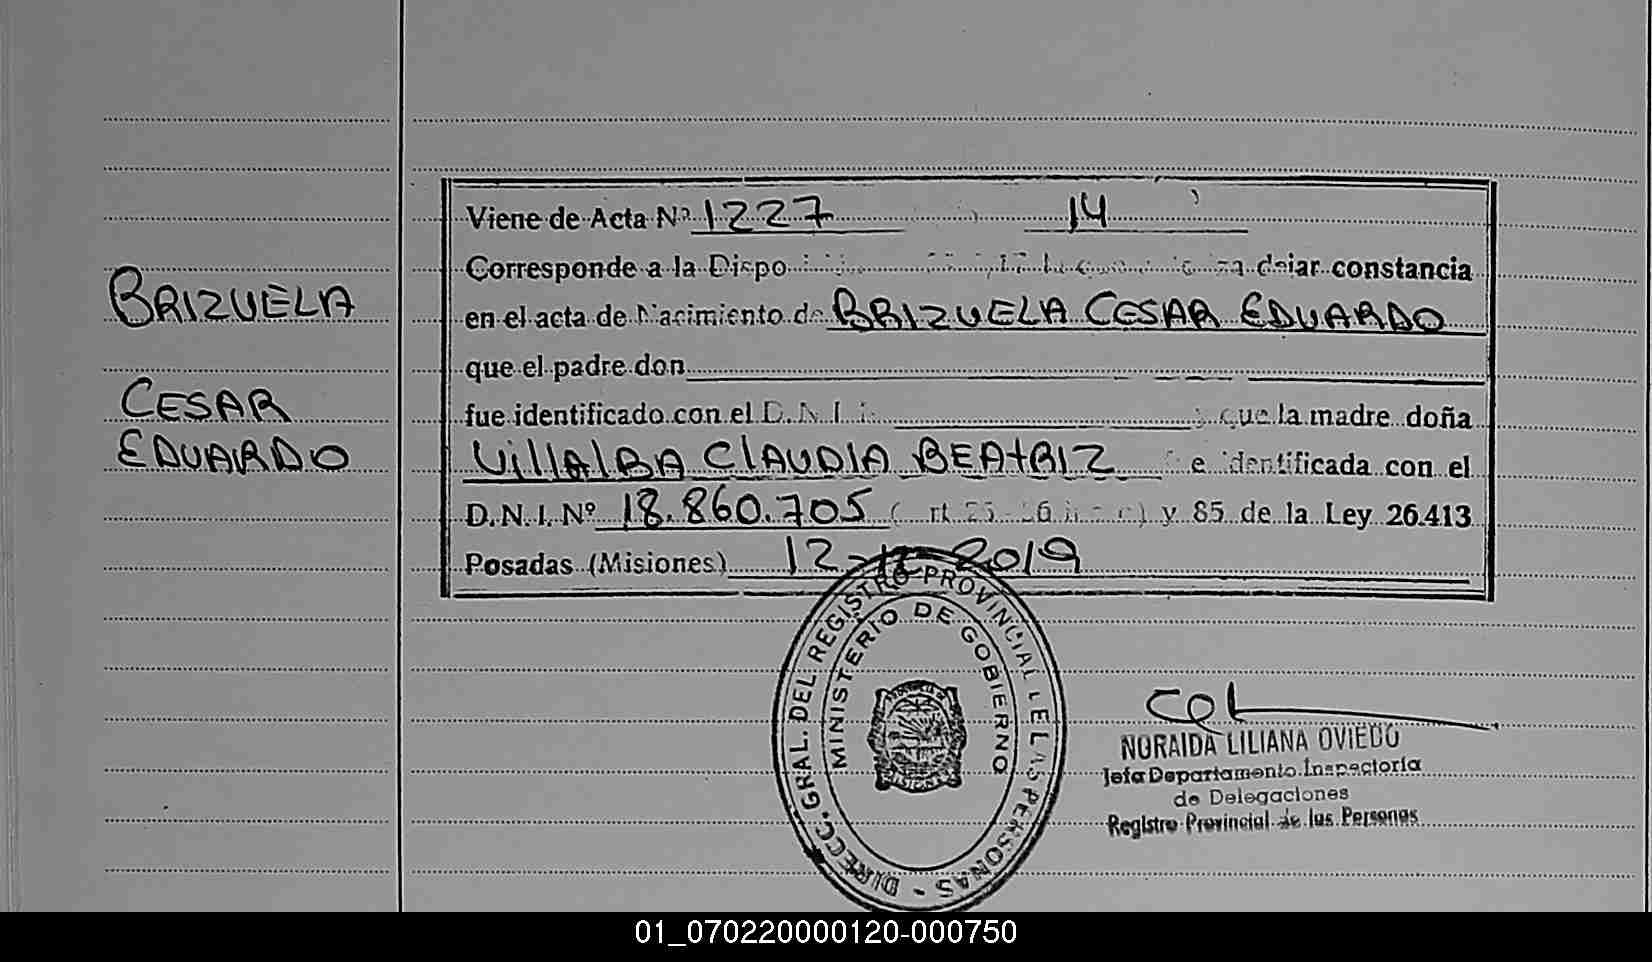 BRIZUELA
CESAR
EDUARDO
Viene de Acta Nº 1227 14
Corresponde a la Dispo dejar constancia
en el acta de Nacimiento de BRIZUELA CESAR EDUARDO
que el padre don
fue identificado con el D.N.I. que la madre doña
VillAlBA ClAUDIA BEAtRIZ e identificada con el
D.N.I. Nº 18.860.705 y 85 de la Ley 26.413
Posadas (Misiones) 12-12-2019
DIRECC. GRAL. DEL REGISTRO PROVINCIAL DE LAS PERSONAS -
MINISTERIO DE GOBIERNO
NORAIDA LILIANA OVIEDO
Jefa Departamento Inspectoria
de Delegaciones
Registro Provincial de las Personas
01_070220000120-000750